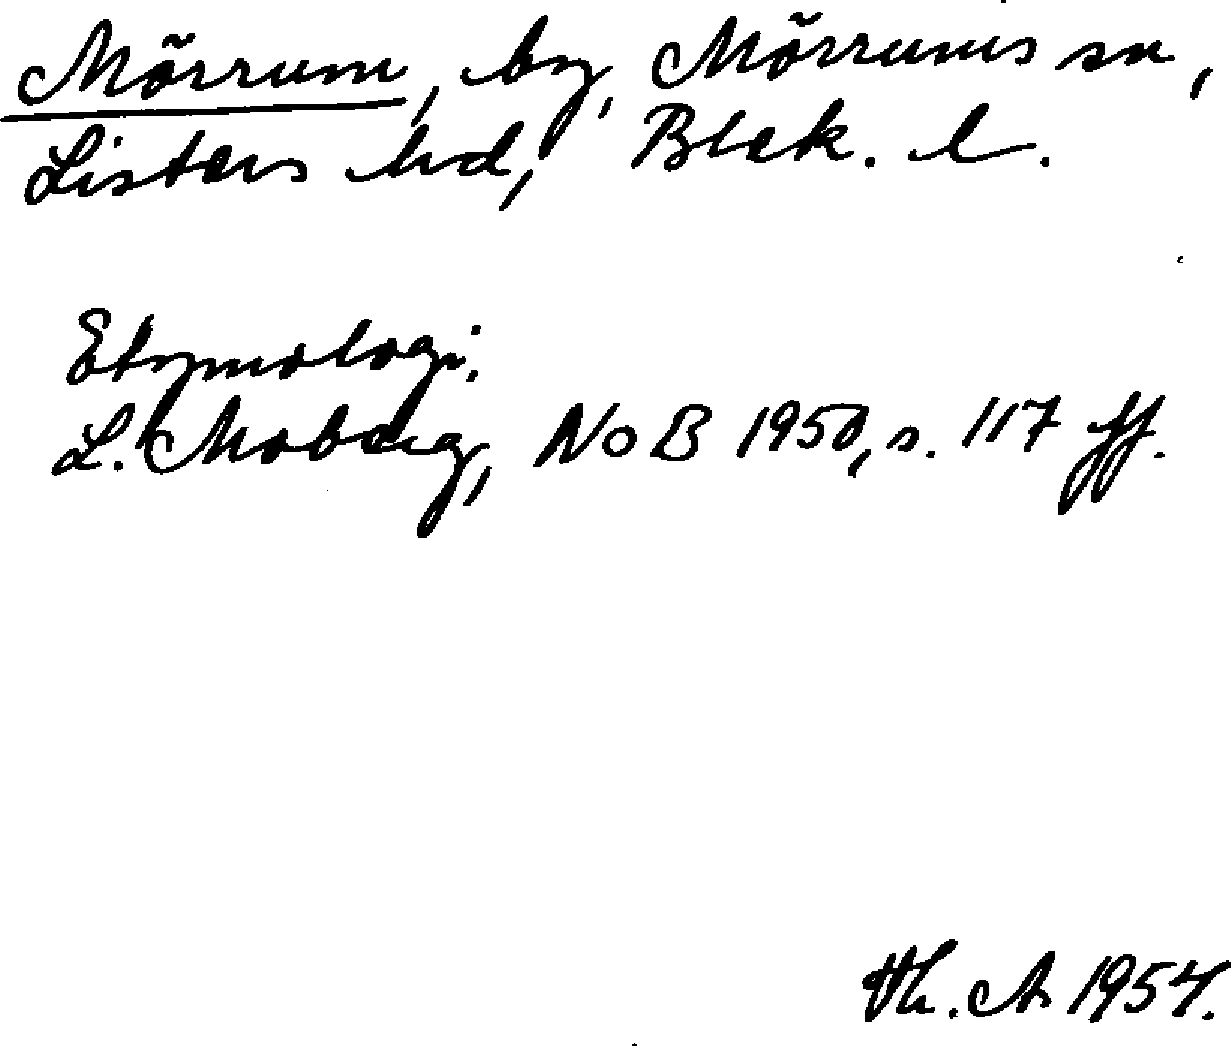 Mörrum, by, Mörrums sn,
Listers hd, Blek. l.
Etymologi.
L. Moberg, NoB 1950, s. 117 ff.
Th. A 1954.